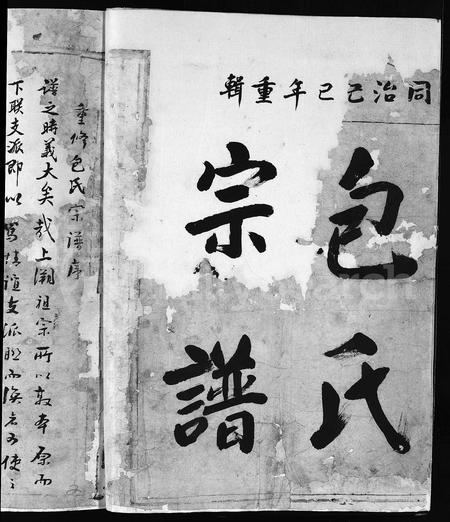 同治己巳年重輯
包氏
宗譜
重修包氏宗譜序
譜之時義大矣哉上溯祖宗所以敦本原而
下联支派即以篤情誼支派